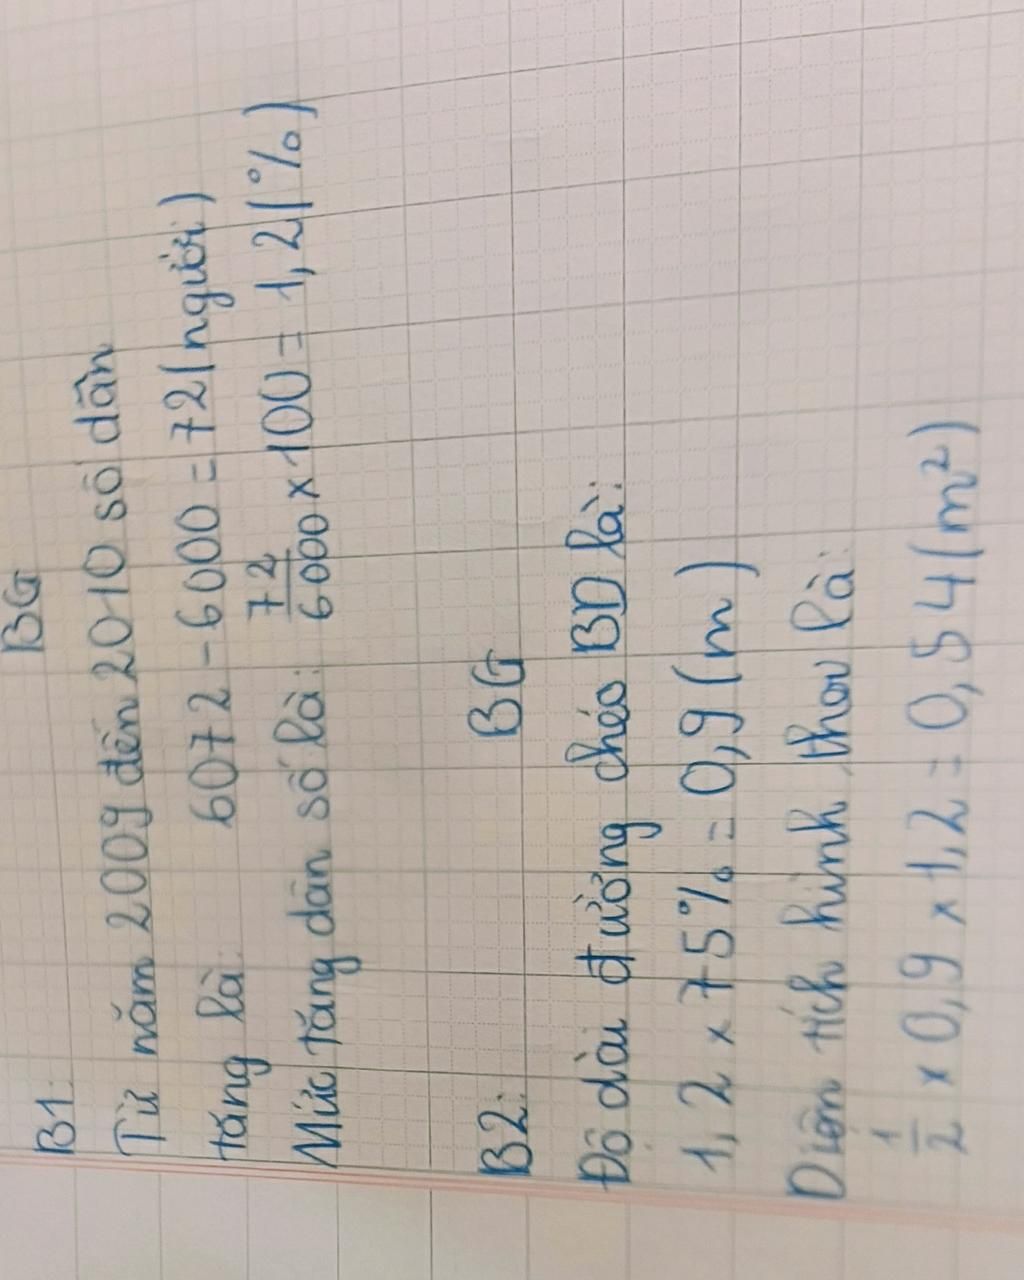 BG
B1:
Từ năm 2009 đến 2010 số dân
tăng là: 6072 - 6000 = 72 (người)
Mức tăng dân số là: 72/6000 x 100 = 1,2 (%)
BG
B2:
Độ dài đường chéo BD là:
1,2 x 75% = 0,9 (m)
Diện tích hình thoi là:
1/2 x 0,9 x 1,2 = 0,54 (m²)